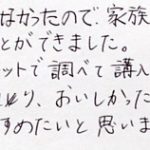 なかったので、家族
とができました。
ットで調べて購入
より、おいしかった
すめたいと思いま